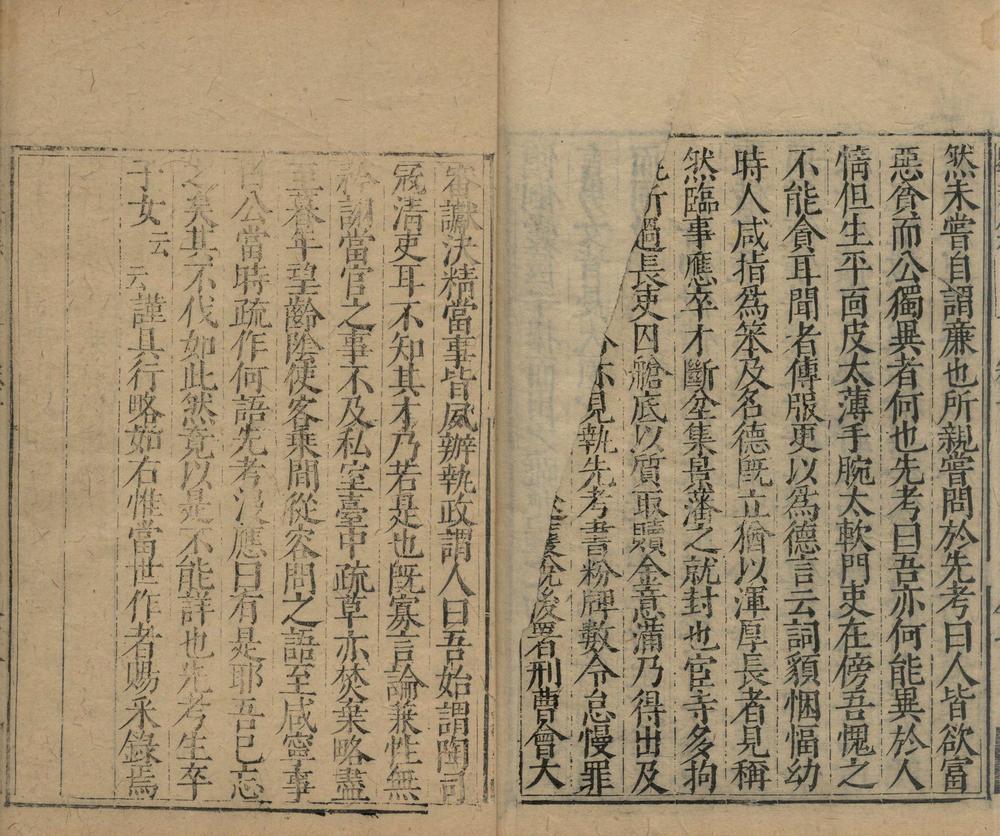 然未嘗自謂廉也所親嘗問於先考曰人皆欲富
惡貧而公獨異者何也先考曰吾亦何能異於人
情但生平面皮太薄手腕太軟門吏在傍吾愧之
不能貪耳聞者傳服更以為德言云詞貌悃愊幼
時人咸指為笨及名德既立猶以渾厚長者見稱
然臨事應卒才斷坌集景藩之就封也宦寺多拘
所過長吏囚艙底以質取贖金意滿乃得出及
亦見執先考書粉牌數令怠慢罪
後署刑曹會大
審讞決精當事皆風辦執政謂人曰吾始謂陶司
寇清吏耳不知其才乃若是也既寡言論兼性無
詡當官之事不及私室臺中疏草亦焚棄略盡
暮年望齡陰使客乘間從容問之語至咸寧事
公當時疏作何語先考漫應曰有是耶吾已忘
之矣其不伐如此然竟以是不能詳也先考生卒
子女云云謹具行略如右惟當世作者賜采錄焉